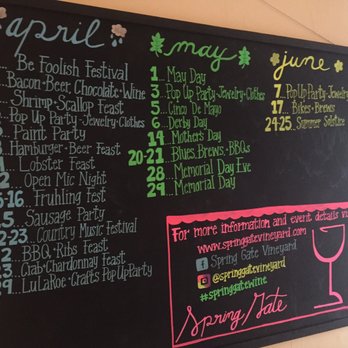 april
Be Foolish Festival
Bacon·Beer, Chocolate·Wine
Shrimp·Scallop Feast
Pop Up Party·Jewelry·Clothes
Paint Party
Hamburger·Beer Feast
Lobster Feast
Open Mic Night
Fruhling Fest
Sausage Party
Country Music Festival
BBQ·Ribs Feast
Crab·Chardonnay Feast
LuLaRoe·Crafts Pop Up Party
may
1... May Day
3... Pop Up Party·Jewelry·Clothes
5... Cinco De Mayo
6... Derby Day
14... Mother's Day
20-21... Blues, Brews·BBQs
28... Memorial Day Eve
29... Memorial Day
june
7... Pop Up Party·Jewelry
17... Bikes·Brews
24-25... Summer Solstice
For more information and event details vi
www.springgatevineyard.com
f Spring Gate Vineyard
@springgatevineyard
#springgatewine
Spring Gate